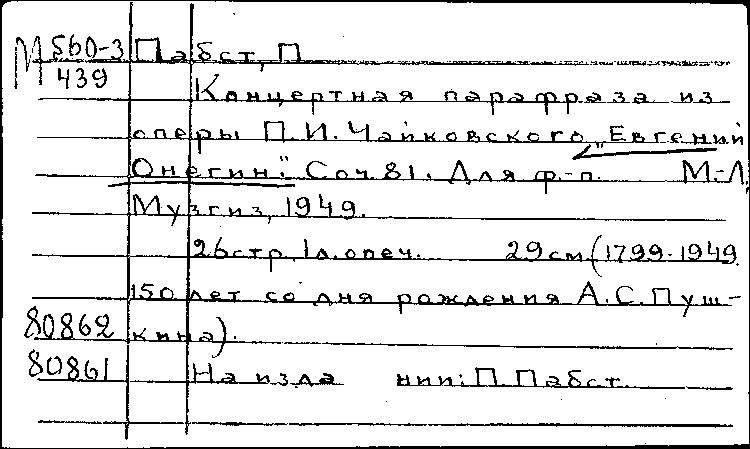 М 560-3 Пабст, П
439
Концертная парафраза из
оперы П.И. Чайковского „Евгений
Онегин." Соч. 81. Для ф.-п. М.-Л,
Музгиз, 1949.
26 стр, 1 л. опеч. 29 см. (1799-1949
150 лет со дня рождения А.С. Пуш-
80862 кина).
80861 На изда нии: П. Пабст.